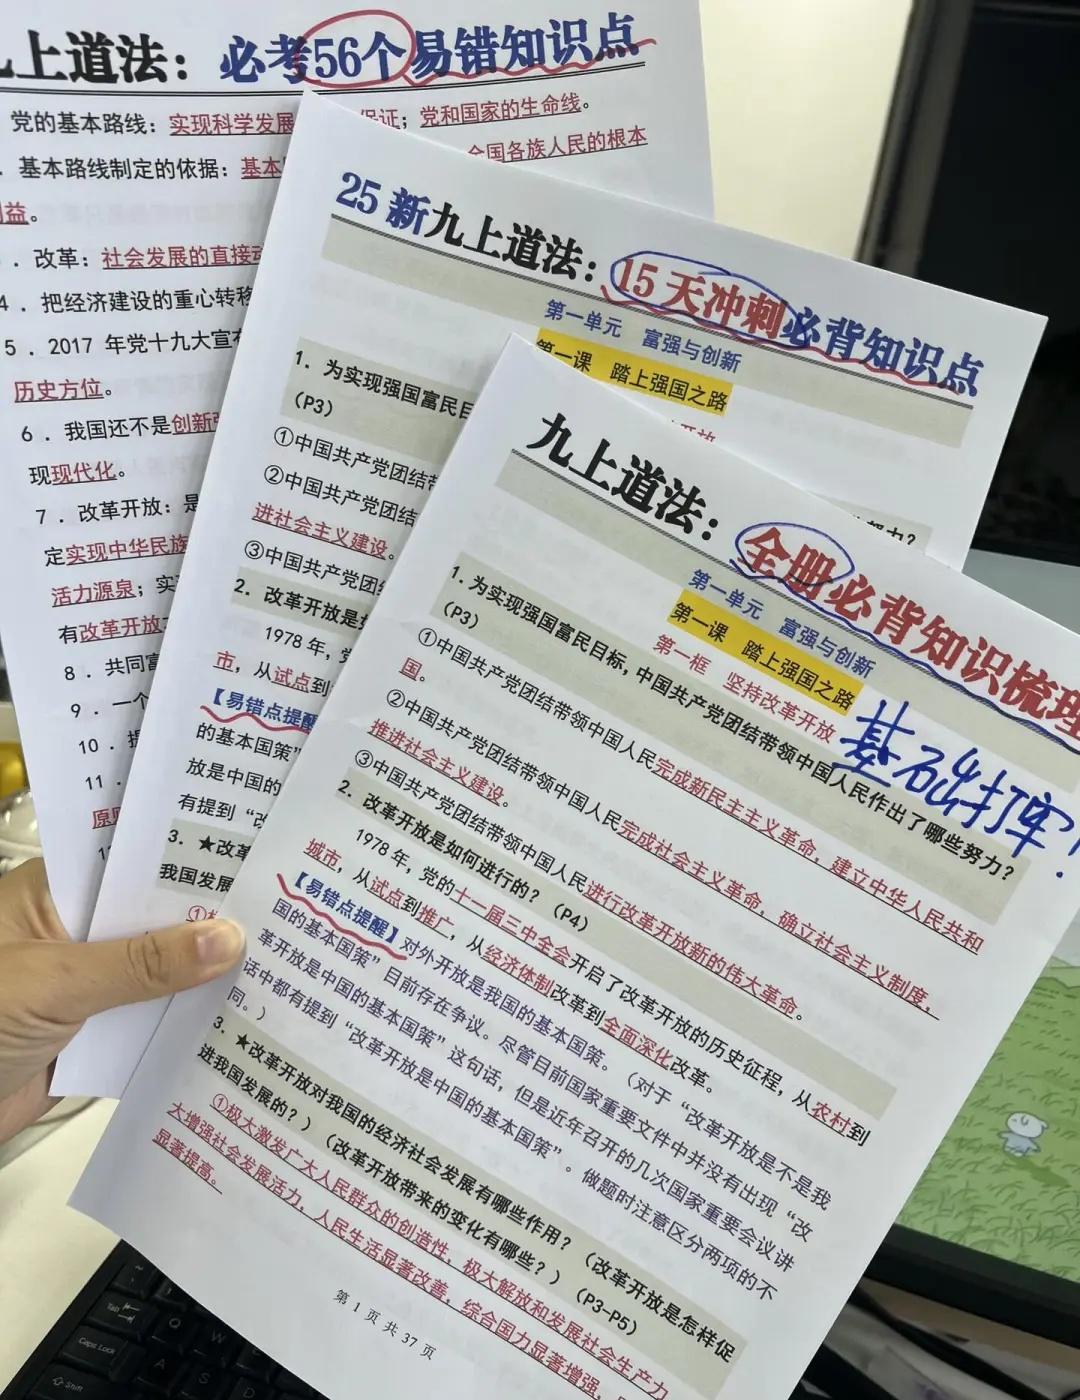 九上道法：必考56个易错知识点
党的基本路线：实现科学发展
保证；党和国家的生命线。
基本路线制定的依据：基本
全国各族人民的根本
益。
．改革：社会发展的直接动
4．把经济建设的重心转移
5．2017 年党十九大宣布
历史方位。
6．我国还不是创新强
现现代化。
7．改革开放：是
定实现中华民族
活力源泉；实
有改革开放
8．共同富
9．一个
10．
11．
原则
25 新九上道法：15 天冲刺必背知识点
第一单元 富强与创新
第一课 踏上强国之路
1. 为实现强国富民目
努力？
（P3）
①中国共产党团结带
②中国共产党团结
进社会主义建设。
③中国共产党团结
2. 改革开放是
1978 年，党
市，从试点到
【易错点提醒
的基本国策”
放是中国的
有提到“改
3. ★改革
我国发展
九上道法：全册必背知识梳理
第一单元 富强与创新
第一课 踏上强国之路
第一框 坚持改革开放
基础打牢！
1. 为实现强国富民目标，中国共产党团结带领中国人民作出了哪些努力？
（P3）
①中国共产党团结带领中国人民完成新民主主义革命，建立中华人民共和
国。
②中国共产党团结带领中国人民完成社会主义革命，确立社会主义制度，
推进社会主义建设。
③中国共产党团结带领中国人民进行改革开放新的伟大革命。
2. 改革开放是如何进行的？（P4）
1978 年，党的十一届三中全会开启了改革开放的历史征程，从农村到
城市，从试点到推广，从经济体制改革到全面深化改革。
【易错点提醒】对外开放是我国的基本国策。（对于“改革开放是不是我
国的基本国策”目前存在争议。尽管目前国家重要文件中并没有出现“改
革开放是中国的基本国策”这句话，但是近年召开的几次国家重要会议讲
话中都有提到“改革开放是中国的基本国策”。做题时注意区分两项的不
同。）
3. ★改革开放对我国的经济社会发展有哪些作用？（改革开放是怎样促
进我国发展的？）（改革开放带来的变化有哪些？）（P3-P5）
①极大激发广大人民群众的创造性，极大解放和发展社会生产力
大增强社会发展活力，人民生活显著改善，综合国力显著增强，
显著提高。
第 1 页 共 37 页
Tab
Q
W
Caps Lock
A
S
Shift